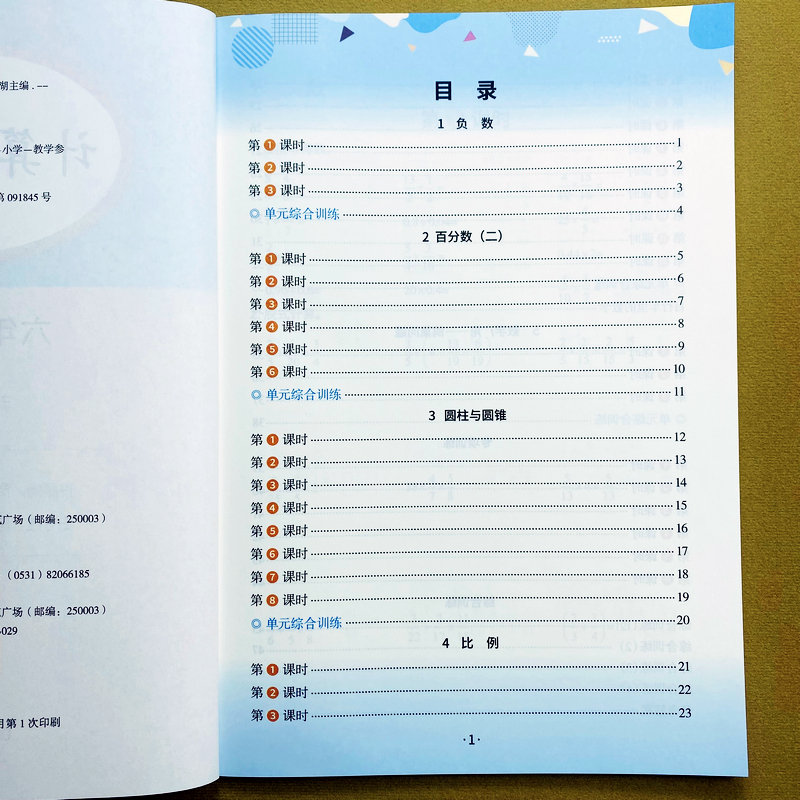 湖主编.--
小学—教学参
第 091845 号
广场（邮编：250003）
（0531）82066185
广场（邮编：250003）
-029
月第 1 次印刷
目 录
1 负 数
第1课时 1
第2课时 2
第3课时 3
◎ 单元综合训练 4
2 百分数（二）
第1课时 5
第2课时 6
第3课时 7
第4课时 8
第5课时 9
第6课时 10
◎ 单元综合训练 11
3 圆柱与圆锥
第1课时 12
第2课时 13
第3课时 14
第4课时 15
第5课时 16
第6课时 17
第7课时 18
第8课时 19
◎ 单元综合训练 20
4 比 例
第1课时 21
第2课时 22
第3课时 23
·1·